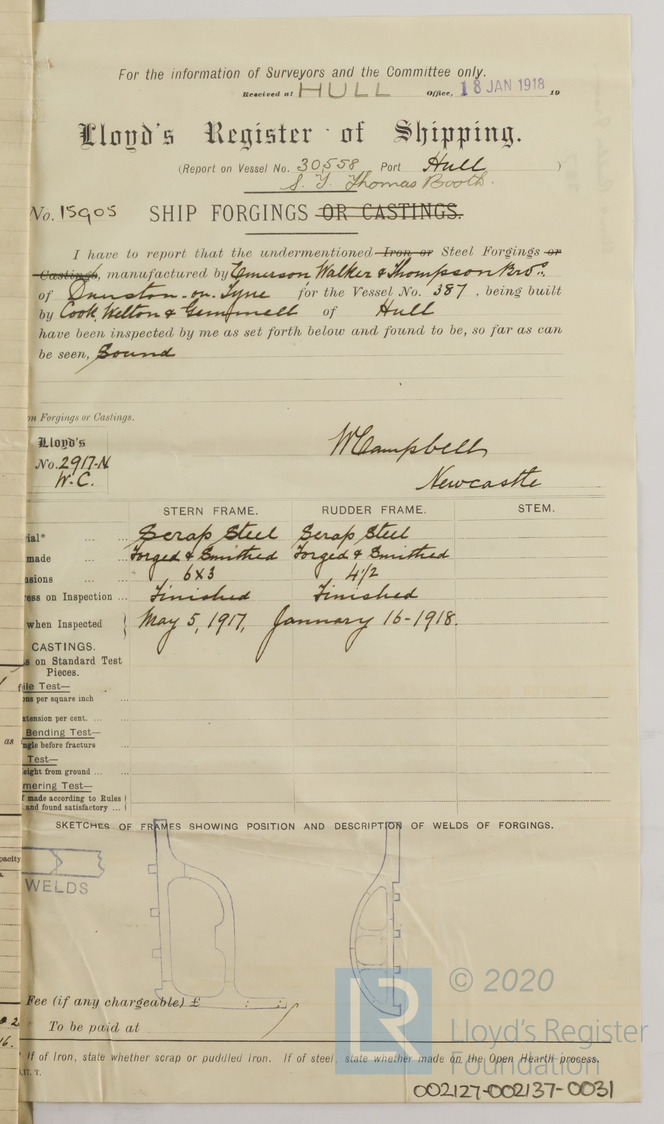 For the information of Surveyors and the Committee only.
Received at HULL Office, 18 JAN 1918 19
Lloyd's Register of Shipping.
(Report on Vessel No. 30,558 Port Hull )
S. T. Thomas Booth.
No. 15905 SHIP FORGINGS OR CASTINGS.
I have to report that the undermentioned Iron or Steel Forgings or
Castings, manufactured by Emerson Walker & Thompson Bros.
of Dunston-on-Tyne for the Vessel No. 387, being built
by Cook, Welton & Gemmell of Hull
have been inspected by me as set forth below and found to be, so far as can
be seen, Sound
on Forgings or Castings.
Lloyd's
No. 2917-N
W.C.
W Campbell
Newcastle
STERN FRAME. RUDDER FRAME. STEM.
ial* ... ... Scrap Steel Scrap Steel
made ... ... Forged & Smithed Forged & Smithed
sions ... ... 6x3 4 1/2
ess on Inspection ... Finished Finished
when Inspected May 5, 1917, January 16-1918.
CASTINGS.
s on Standard Test
Pieces.
ile Test—
ons per square inch ...
xtension per cent. ... ...
Bending Test—
as ngle before fracture ...
Test—
eight from ground ... ...
mering Test—
f made according to Rules
and found satisfactory ...
SKETCHES OF FRAMES SHOWING POSITION AND DESCRIPTION OF WELDS OF FORGINGS.
pacity
WELDS
Fee (if any chargeable) £
To be paid at
16.
* If of Iron, state whether scrap or puddled iron. If of steel, state whether made on the Open Hearth process.
© 2020
Lloyd's Register
Foundation
LR
002127-002137-0031